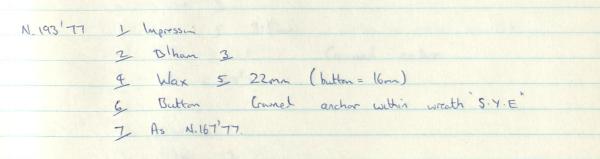 N.193'77 1 Impression
2 B'ham 3
4 Wax 5 22mm (button = 16mm)
6 Button Crowned anchor within wreath "S.Y.E"
7 As N.167'77.